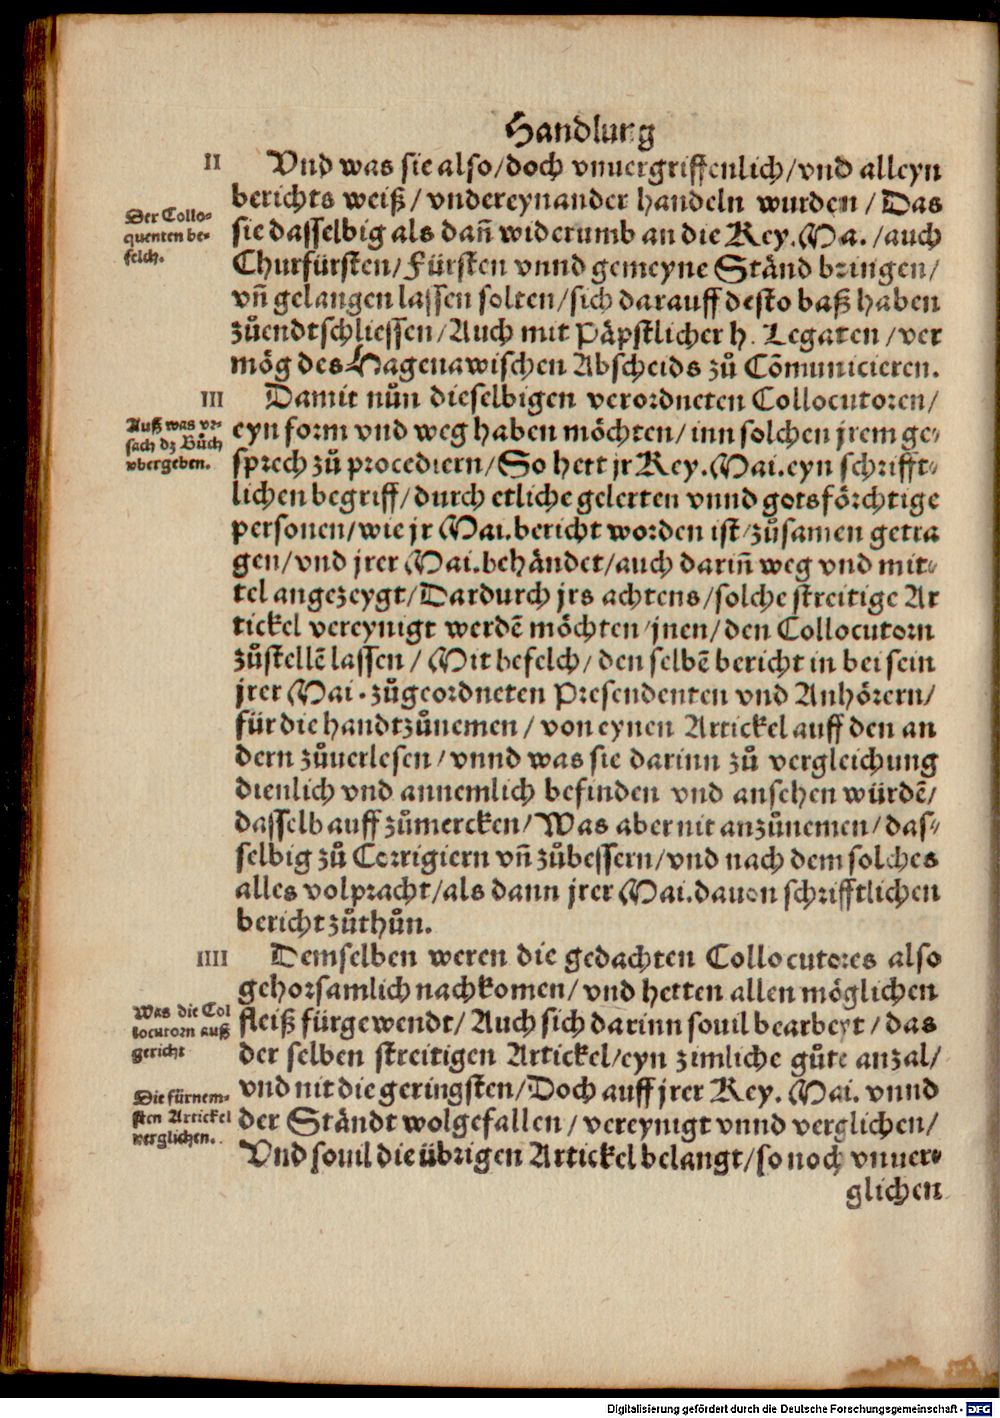 Handlung
II Vnd was sie also/doch vnuergriffenlich/vnd alleyn
berichts weiß/vndereynander handeln wurden/Das
Der Collo-
quenten be-
felch.
sie dasselbig als dañ widerumb an die Key.Ma./auch
Churfürsten/Fürsten vnnd gemeyne Ständ bringen/
vñ gelangen lassen solten/sich darauff desto baß haben
zůendtschliessen/Auch mit Päpstlicher h. Legaten/ver
mög des Hagenawischen Abscheids zů Cõmunicieren.
III Damit nůn dieselbigen verordneten Collocutoren/
Auß was vr-
sach dz Bůch
vbergeben.
eyn form vnd weg haben möchten/inn solchen jrem ge-
sprech zů procediern/So hett jr Key.Mai.eyn schrifft-
lichen begriff/durch etliche gelerten vnnd gotsförchtige
personen/wie jr Mai.bericht worden ist/zůsamen getra
gen/vnd jrer Mai.behändet/auch dariñ weg vnd mit-
tel angezeygt/Dardurch jrs achtens/solche streitige Ar
tickel vereynigt werdẽ möchten/jnen/den Collocutorn
zůstellẽ lassen/Mit befelch/den selbẽ bericht in bei sein
jrer Mai.zůgeordneten Presendenten vnd Anhörern/
für die handtzůnemen/von eynen Artickel auff den an
dern zůuerlesen/vnnd was sie darinn zů vergleichung
dienlich vnd annemlich befinden vnd ansehen würdẽ/
dasselb auff zůmercken/Was aber nit anzůnemen/das-
selbig zů Corrigiern vñ zůbessern/vnd nach dem solches
alles volpracht/als dann jrer Mai.dauon schrifftlichen
bericht zůthůn.
IIII Demselben weren die gedachten Collocutores also
gehorsamlich nachkomen/vnd hetten allen möglichen
Was die Col
locutorn auß
gericht
fleiß fürgewendt/Auch sich darinn souil bearbeyt/das
der selben streitigen Artickel/eyn zimliche gůte anzal/
Die fürnem-
sten Artickel
verglichen.
vnd nit die geringsten/Doch auff jrer Key. Mai. vnnd
der Ständt wolgefallen/vereynigt vnnd verglichen/
Vnd souil die übrigen Artickel belangt/so noch vnuer-
glichen
Digitalisierung gefördert durch die Deutsche Forschungsgemeinschaft - DFG